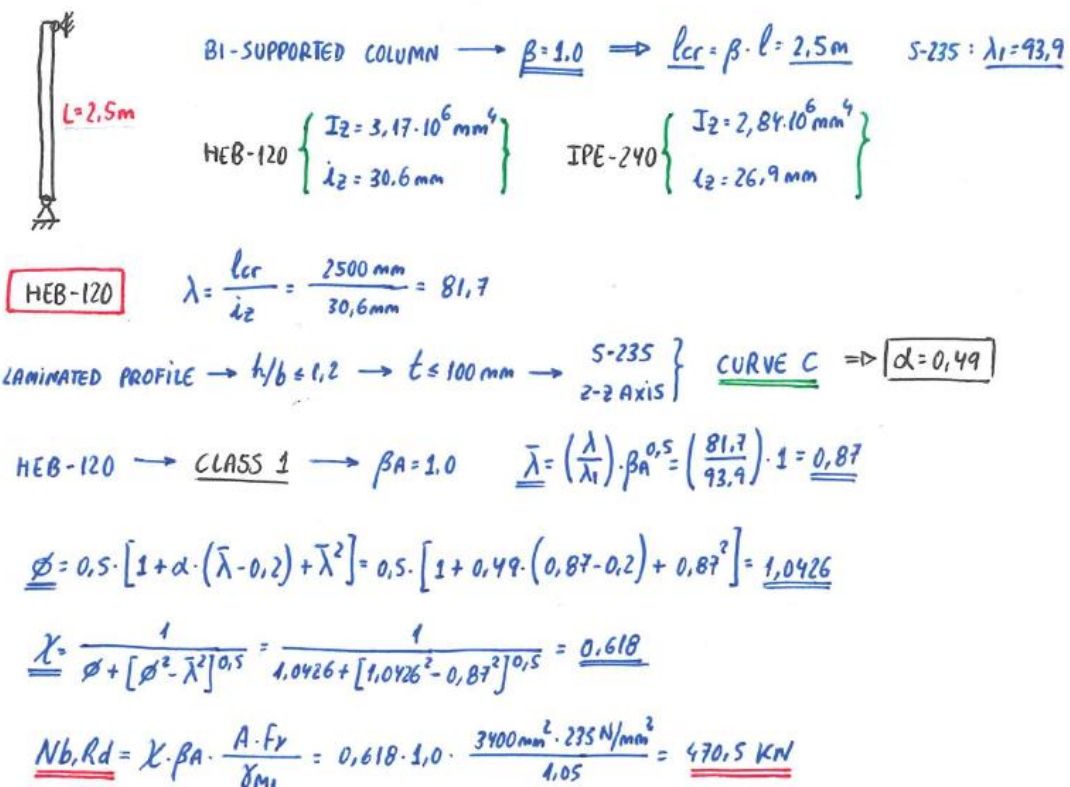 BI-SUPPORTED COLUMN → β=1.0 ⇒ lcr = β·l = 2,5m S-235 : λ1=93,9
L=2,5m
HEB-120 { Iz = 3,17·10^6 mm^4 IPE-240 { Iz = 2,84·10^6 mm^4
iz = 30.6 mm } iz = 26,9 mm }
HEB-120 λ = lcr/iz = 2500 mm/30,6mm = 81,7
LAMINATED PROFILE → h/b ≤ 1,2 → t ≤ 100 mm → S-235 z-z AXIS } CURVE C ⇒ α=0,49
HEB-120 → CLASS 1 → βA=1.0 λ̄ = (λ/λ1)·βA^0,5 = (81.7/93,9)·1 = 0,87
Ø = 0,5·[1+α·(λ̄-0,2)+λ̄^2] = 0,5·[1+0,49·(0,87-0,2)+0,87^2] = 1,0426
χ = 1/Ø+[Ø^2-λ̄^2]^0,5 = 1/1.0426+[1,0426^2-0,87^2]^0,5 = 0,618
Nb,Rd = χ·βA·A·Fy/γM1 = 0,618·1,0·3400mm^2·235 N/mm^2/1,05 = 470,5 KN